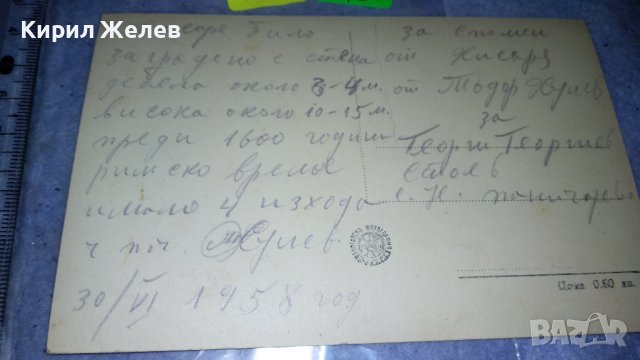 Кирил Желев
било
заградено с стени
дебела около 3-4 м.
висока около 10-15 м.
преди 1600 години
римско време
имало 4 изхода
30/VI 1958 год
за спомен
от Хисаря
от Тодор
за
Георги Георгиев
Цена 0.60 лв.
BAZAR.bg